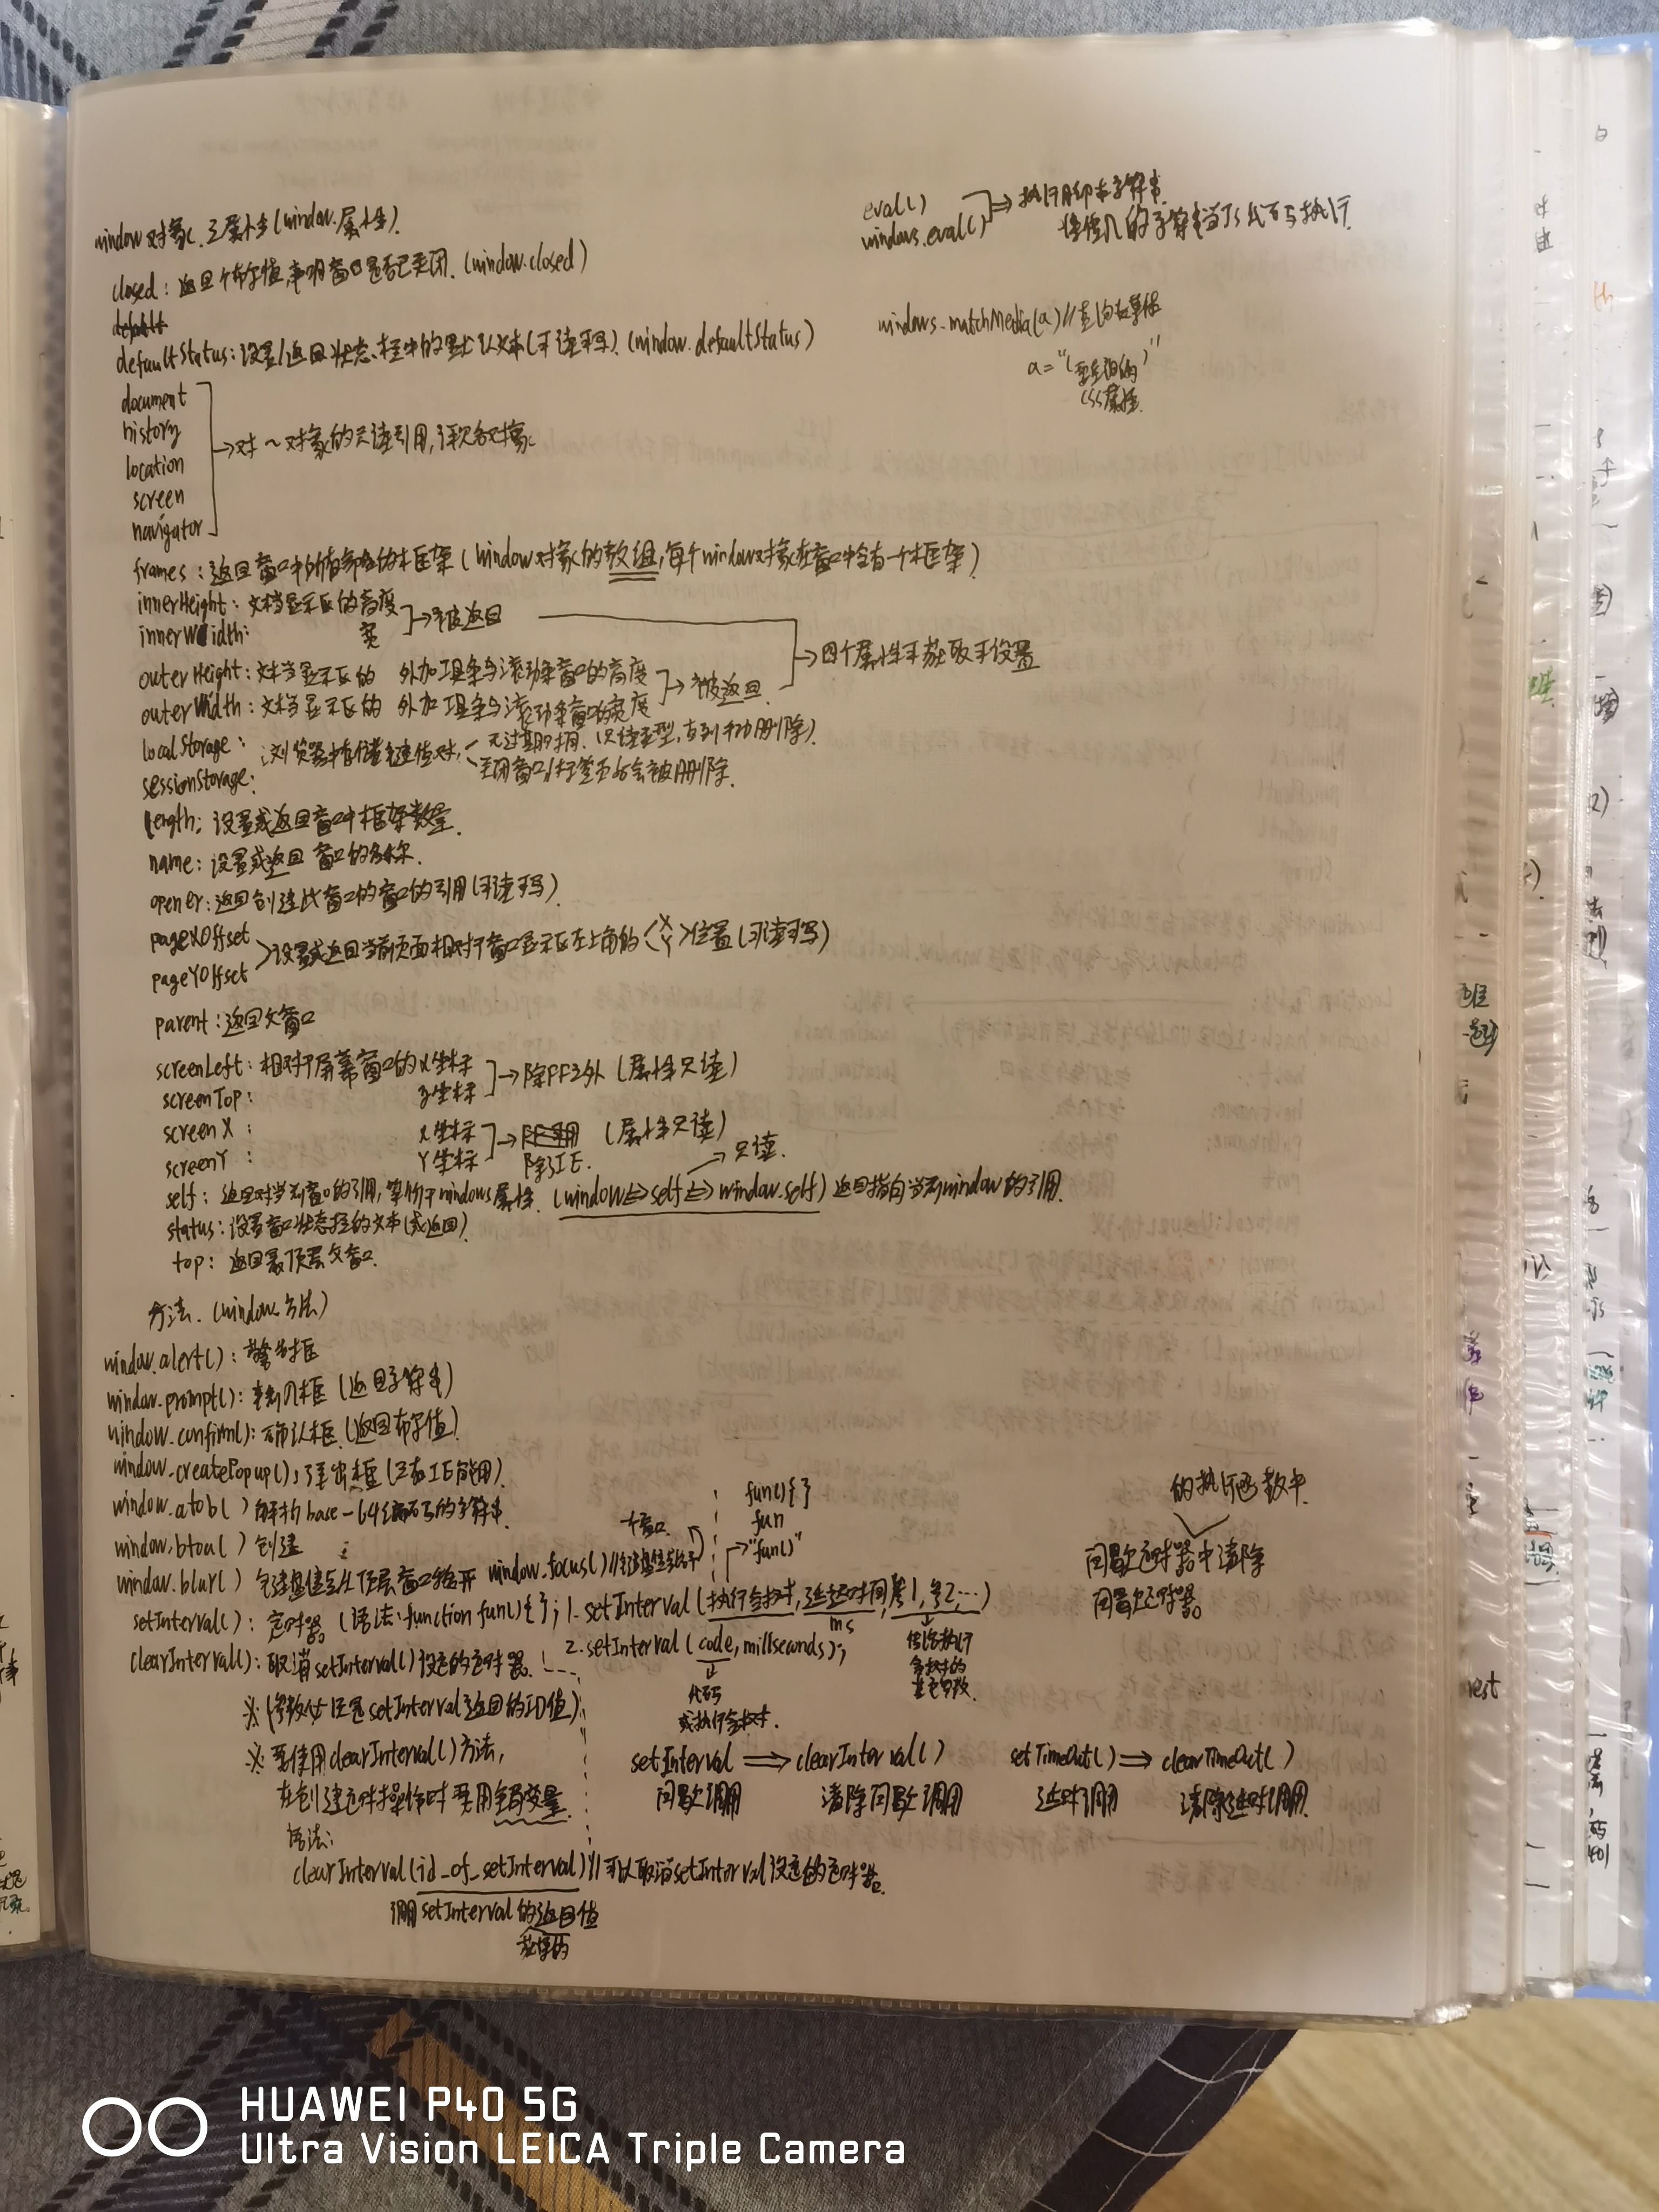 window对象.之属性(window.属性).
closed: 返回个布尔值,声明窗口是否已关闭.(window.closed)
defaultStatus: 设置/返回状态栏中的默认文本(可读可写).(window.defaultStatus)
document
history
location
screen
navigator
→对~对象的只读引用,详次各对象
frames: 返回窗口中所有命名的框架(window对象的数组,每个window对象在窗口中含有一个框架)
innerHeight: 文档显示区的高度
innerWidth: 宽
→被返回
outerHeight: 文档显示区的 外加工具条与滚动条窗口的高度
outerWidth: 文档显示区的 外加工具条与滚动条窗口的宽度
→被返回
→四个属性可获取可设置
localStorage:
sessionStorage:
浏览器中存储键值对
无过期时间.(只读类型,直到手动删除).
关闭窗口/标签页后会被删除.
length: 设置或返回窗口中框架数量.
name: 设置或返回 窗口的名称.
opener: 返回创建此窗口的窗口的引用(可读可写)
pageXOffset
pageYOffset
设置或返回当前页面相对于窗口显示区左上角的<X Y>位置(可读可写)
parent: 返回父窗口
screenLeft: 相对于屏幕窗口的x坐标
screenTop: y坐标
→除FF之外(属性只读)
screenX: x坐标
screenY: Y坐标
→ (属性只读)
除了IE.
→只读.
self: 返回对当前窗口的引用,等价于windows属性.(window<=>self<=>window.self)返回指向当前window的引用.
status: 设置窗口状态栏的文本(或返回)
top: 返回最顶层父窗口.
方法.(window方法)
window.alert(): 警告框
window.prompt(): 输入框(返回字符串)
window.confirm(): 确认框.(返回布尔值)
window.createPopup(); 弹出框(只有IE能用)
window.atob() 解析base-64编码的字符串.
window.btoa() 创建
window.blur() 键盘焦点从顶层窗口移开 window.focus()//键盘焦点给予
大窗口.
func(){}
fun
"fun()"
setInterval(): 定时器.(语法:function fun(){}; 1.setInterval(执行函数,延迟时间,参1,参2,…)
ms
传给执行
函数的
其它参数.
clearInterval(): 取消setInterval()设定的定时器.
2.setInterval(code,millseconds);
代码
或执行函数.
※(参数必须是setInterval返回的ID值)
※要使用clearInterval()方法,
在创建定时操作时要用全局变量.
语法:
clearInterval(id_of_setInterval)//可以取消setInterval设定的定时器.
调用setInterval的返回值
setInterval ⟹ clearInterval()
间歇调用 清除间歇调用
setTimeOut() ⟹ clearTimeOut()
延时调用 清除延时调用.
eval()
windows.eval()
⇒执行脚本字符串.
将传入的字符串当JS代码执行.
windows.matchMedia(a)//查询媒体
a="(要查询的)"
CSS属性.
的执行函数中.
间歇定时器中清除
间歇定时器.
rest
HUAWEI P40 5G
Ultra Vision LEICA Triple Camera